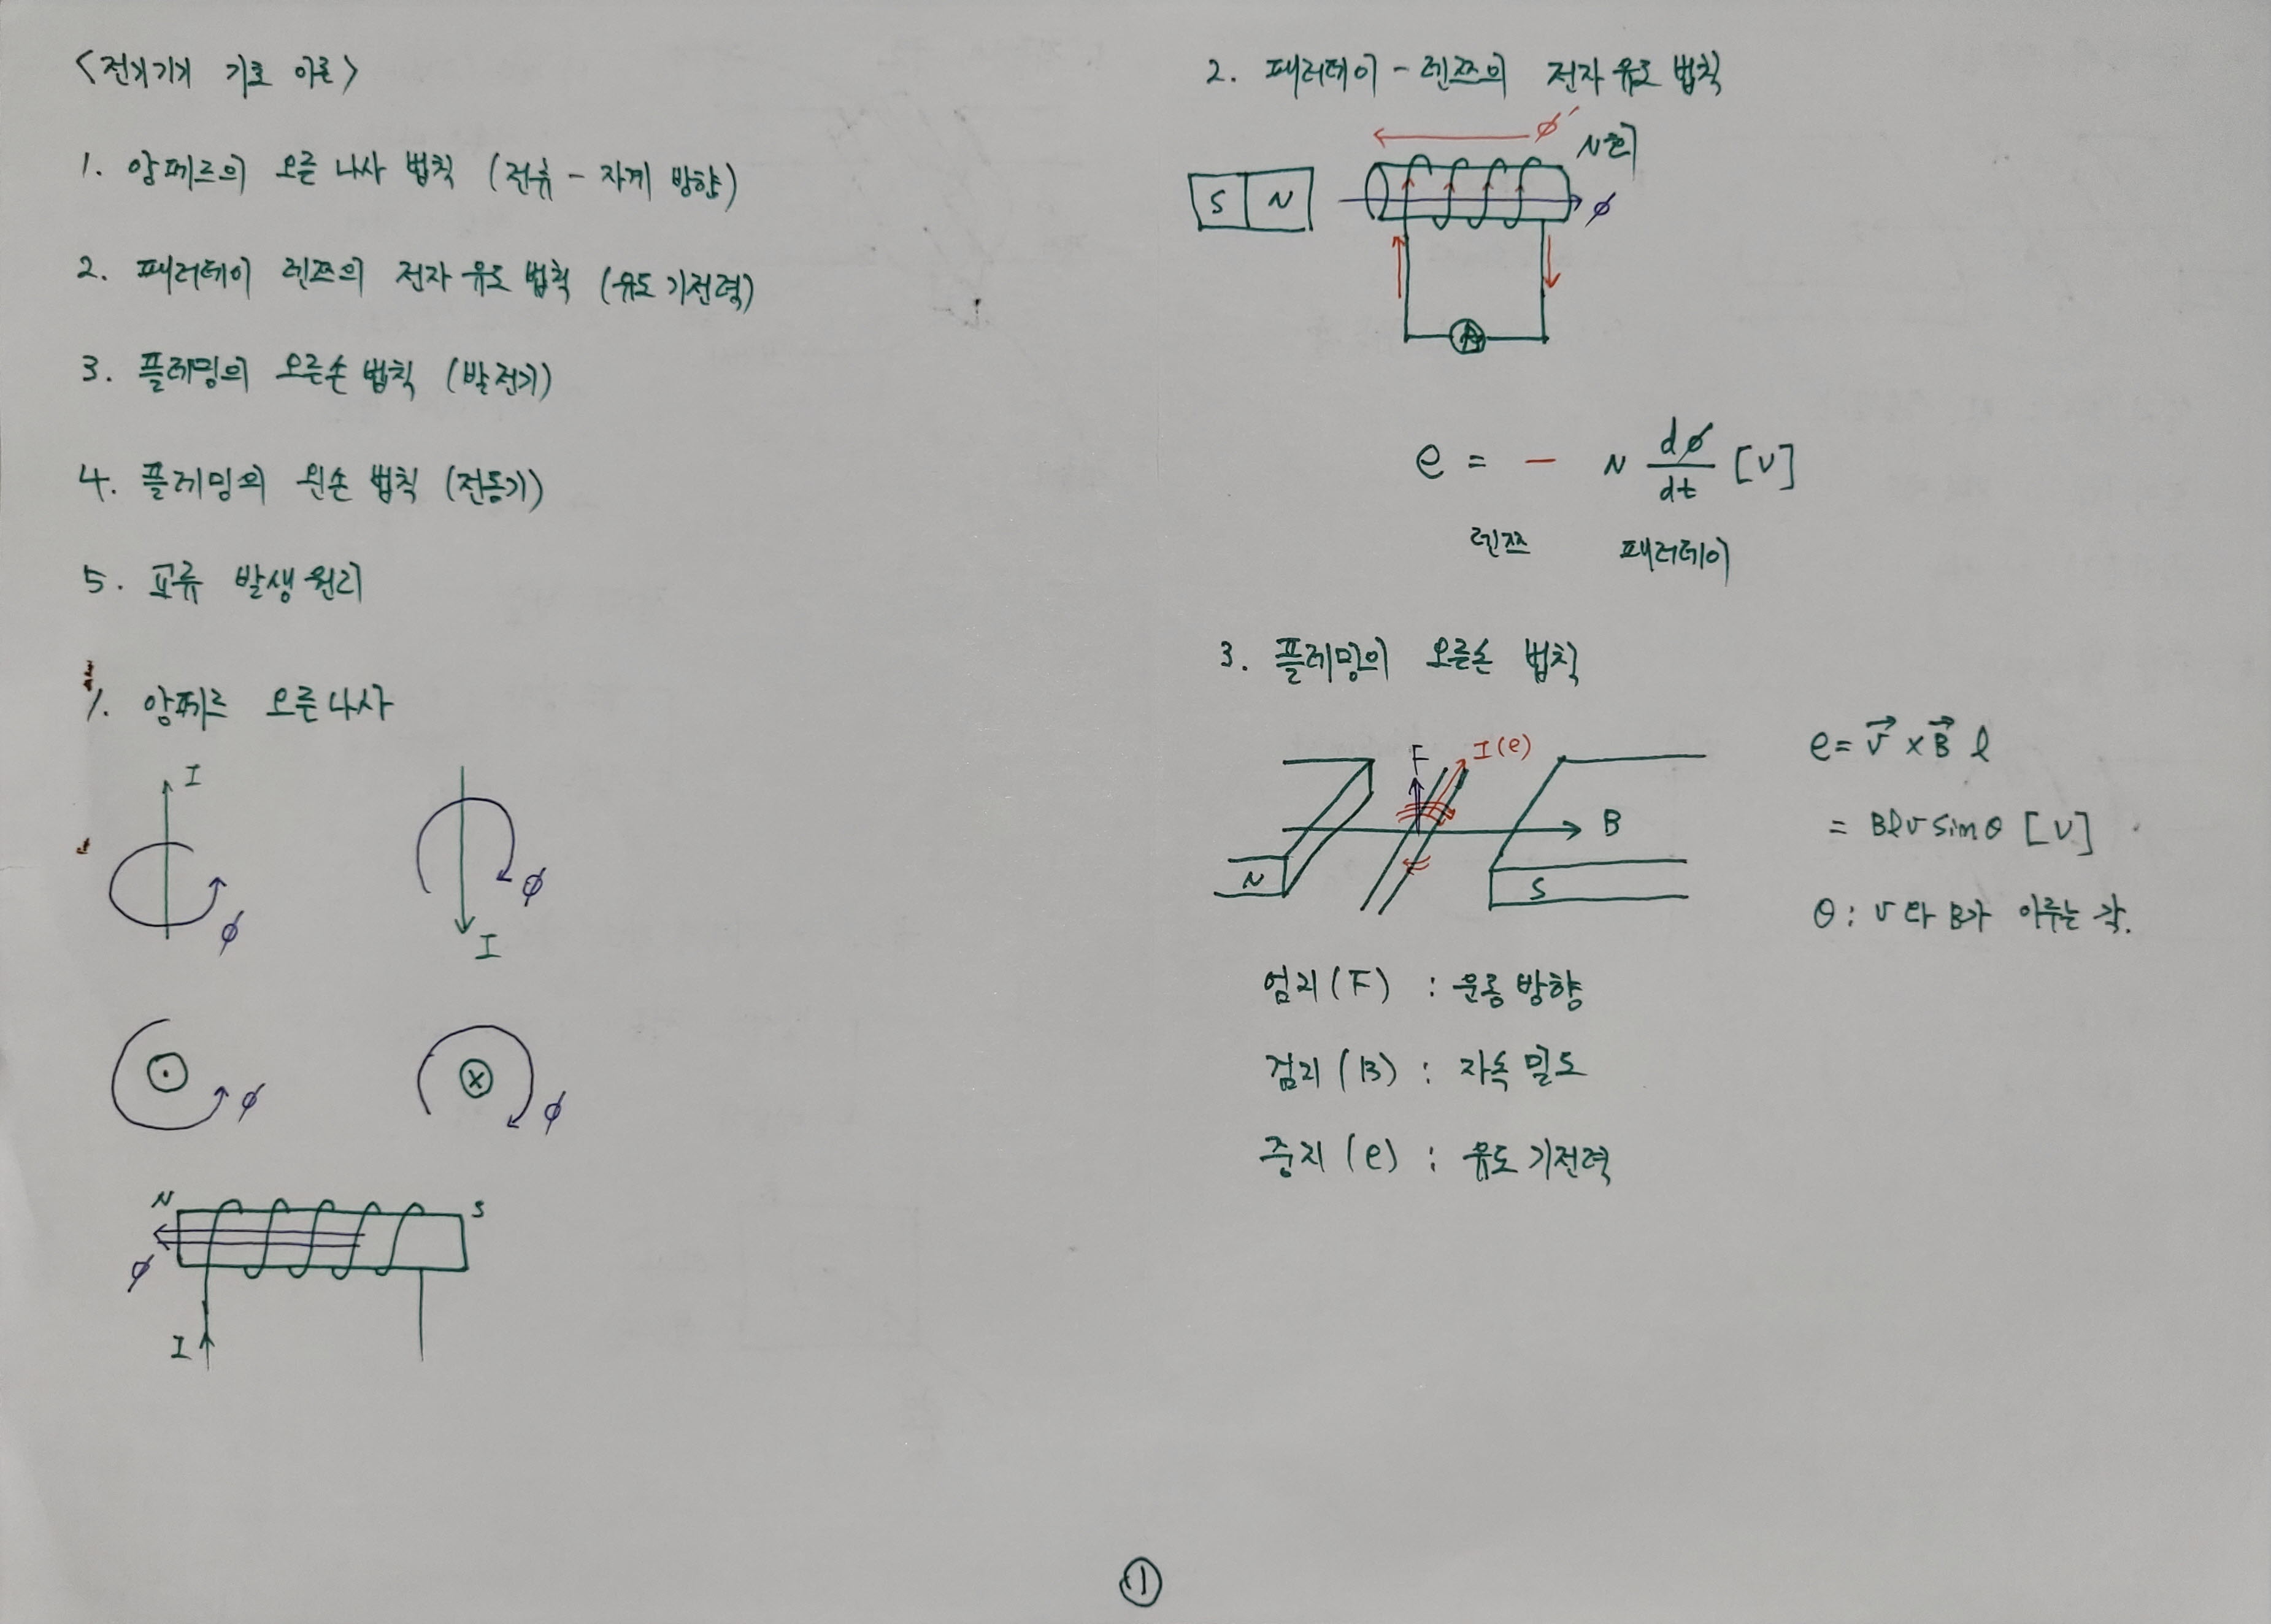 <전기기기 기초 이론>
1. 앙페르의 오른 나사 법칙 (전류 - 자계 방향)
2. 패러데이 렌쯔의 전자 유도 법칙 (유도 기전력)
3. 플레밍의 오른손 법칙 (발전기)
4. 플레밍의 왼손 법칙 (전동기)
5. 교류 발생 원리
1. 앙페르 오른나사
I
φ
φ
I
φ
φ
N
S
φ
I
2. 패러데이 - 렌쯔의 전자 유도 법칙
φ′
N회
S N
φ
A
e = - N dφ/dt [V]
렌쯔 패러데이
3. 플레밍의 오른손 법칙
F
I(e)
B
N
S
e = v⃗ × B⃗ l
= Blv sin θ [V]
θ : v 와 B가 이루는 각.
엄지 (F) : 운동 방향
검지 (B) : 자속 밀도
중지 (e) : 유도 기전력
①